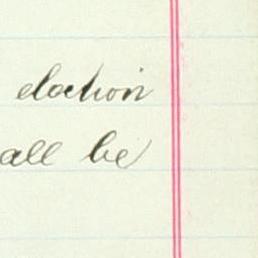 election
all be